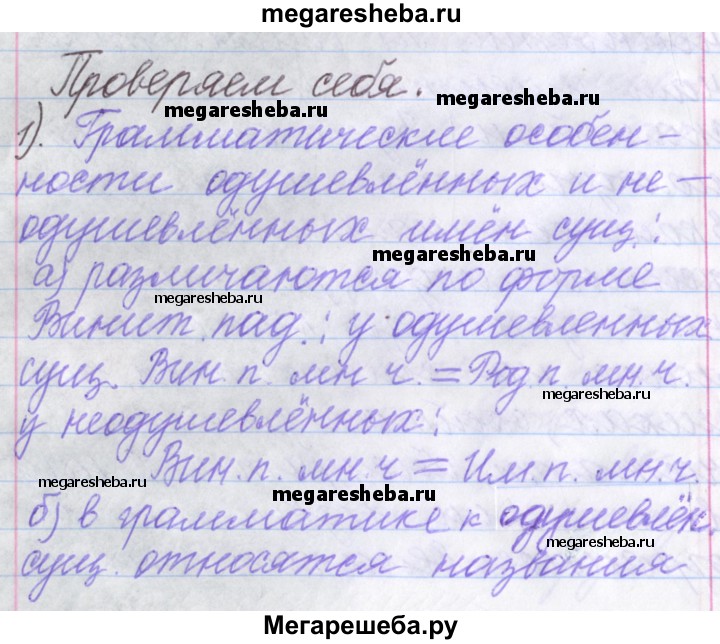 megaresheba.ru
Проверяем себя.
megaresheba.ru
megaresheba.ru
1). Грамматические особен-
ности одушевлённых и не-
одушевлённых имён сущ.:
megaresheba.ru
а) различаются по форме
megaresheba.ru
Винит. пад.: у одушевленных
сущ. Вин. п. мн. ч. = Род п. мн. ч.
megaresheba.ru
у неодушевлённых:
Вин. п. мн. ч = Им. п. мн. ч.
megaresheba.ru
megaresheba.ru
б) в грамматике к одушевлён.
megaresheba.ru
сущ. относятся названия
Мегарешеба.ру